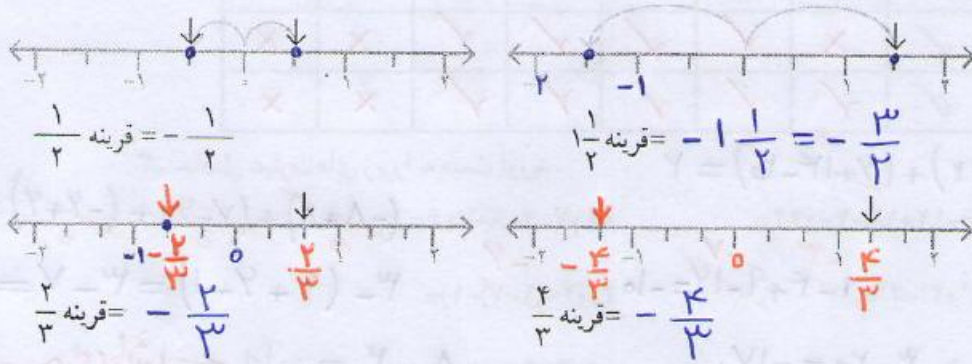 -۲ -۱ ۰ ۱ ۲
۲ -۱ ۱ ۲
۱/۲ قرینه = - ۱/۲
۱ ۱/۲ قرینه = - ۱ ۱/۲ = - ۳/۲
-۲ -۱ -۲/۳ ۰ ۲/۳ ۱ ۲
-۲ -۴/۳ -۱ ۰ ۱ ۴/۳ ۲
۲/۳ قرینه = - ۲/۳
۴/۳ قرینه = - ۴/۳